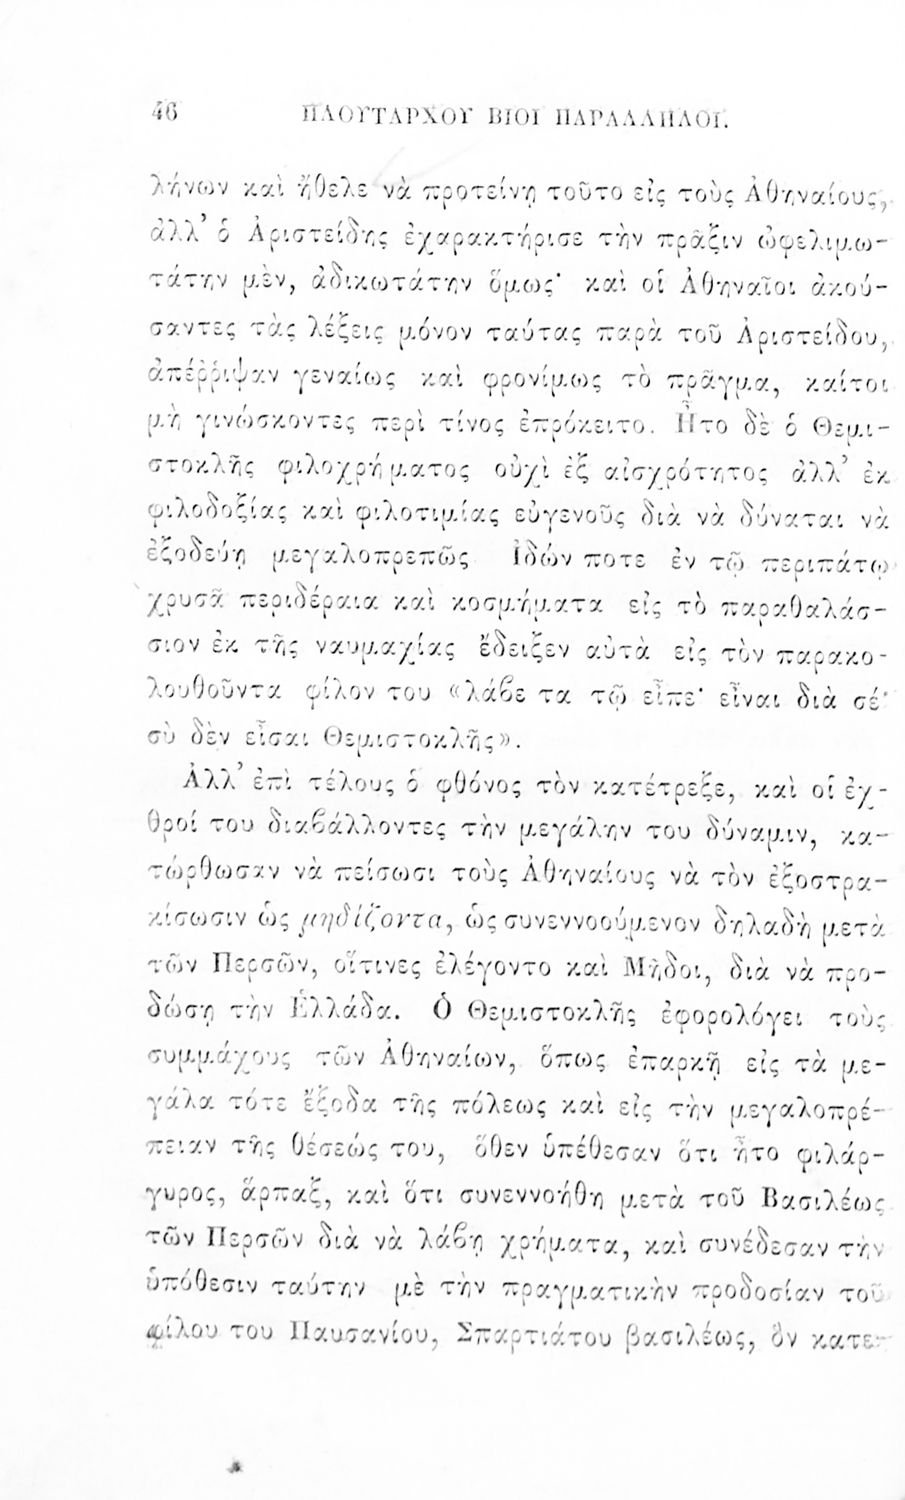 46 ΠΛΟΥΤΑΡΧΟΥ ΒΙΟΙ ΠΑΡΑΛΛΗΛΟΙ.
λήνων καὶ ἤθελε νὰ προτείνῃ τοῦτο εἰς τοὺς Ἀθηναίους,
ἀλλ’ ὁ Ἀριστείδης ἐχαρακτήρισε τὴν πρᾶξιν ὠφελιμω-
τάτην μὲν, ἀδικωτάτην ὅμως· καὶ οἱ Ἀθηναῖοι ἀκού-
σαντες τὰς λέξεις μόνον ταύτας παρὰ τοῦ Ἀριστείδου,
ἀπέῤῥιψαν γεναίως καὶ φρονίμως τὸ πρᾶγμα, καίτοι
μὴ γινώσκοντες περὶ τίνος ἐπρόκειτο. Ἦτο δὲ ὁ Θεμι-
στοκλῆς φιλοχρήματος οὐχὶ ἐξ αἰσχρότητος ἀλλ’ ἐκ
φιλοδοξίας καὶ φιλοτιμίας εὐγενοῦς διὰ νὰ δύναται νὰ
ἐξοδεύῃ μεγαλοπρεπῶς Ἰδών ποτε ἐν τῷ περιπάτῳ
χρυσᾶ περιδέραια καὶ κοσμήματα εἰς τὸ παραθαλάσ-
σιον ἐκ τῆς ναυμαχίας ἔδειξεν αὐτὰ εἰς τὸν παρακο-
λουθοῦντα φίλον του «λάβε τα τῷ εἶπε· εἶναι διὰ σέ·
σὺ δὲν εἶσαι Θεμιστοκλῆς».
Ἀλλ’ ἐπὶ τέλους ὁ φθόνος τὸν κατέτρεξε, καὶ οἱ ἐχ-
θροί του διαβάλλοντες τὴν μεγάλην του δύναμιν, κα-
τώρθωσαν νὰ πείσωσι τοὺς Ἀθηναίους νὰ τὸν ἐξοστρα-
κίσωσιν ὡς μηδίζοντα, ὡς συνεννοούμενον δηλαδὴ μετὰ
τῶν Περσῶν, οἵτινες ἐλέγοντο καὶ Μῆδοι, διὰ νὰ προ-
δώσῃ τὴν Ἑλλάδα. Ὁ Θεμιστοκλῆς ἐφορολόγει τοὺς
συμμάχους τῶν Ἀθηναίων, ὅπως ἐπαρκῇ εἰς τὰ με-
γάλα τότε ἔξοδα τῆς πόλεως καὶ εἰς τὴν μεγαλοπρέ-
πειαν τῆς θέσεώς του, ὅθεν ὑπέθεσαν ὅτι ἦτο φιλάρ-
γυρος, ἅρπαξ, καὶ ὅτι συνεννοήθη μετὰ τοῦ Βασιλέως
τῶν Περσῶν διὰ νὰ λάβῃ χρήματα, καὶ συνέδεσαν τὴν
ὑπόθεσιν ταύτην μὲ τὴν πραγματικὴν προδοσίαν τοῦ
φίλου του Παυσανίου, Σπαρτιάτου βασιλέως, ὃν κατε-